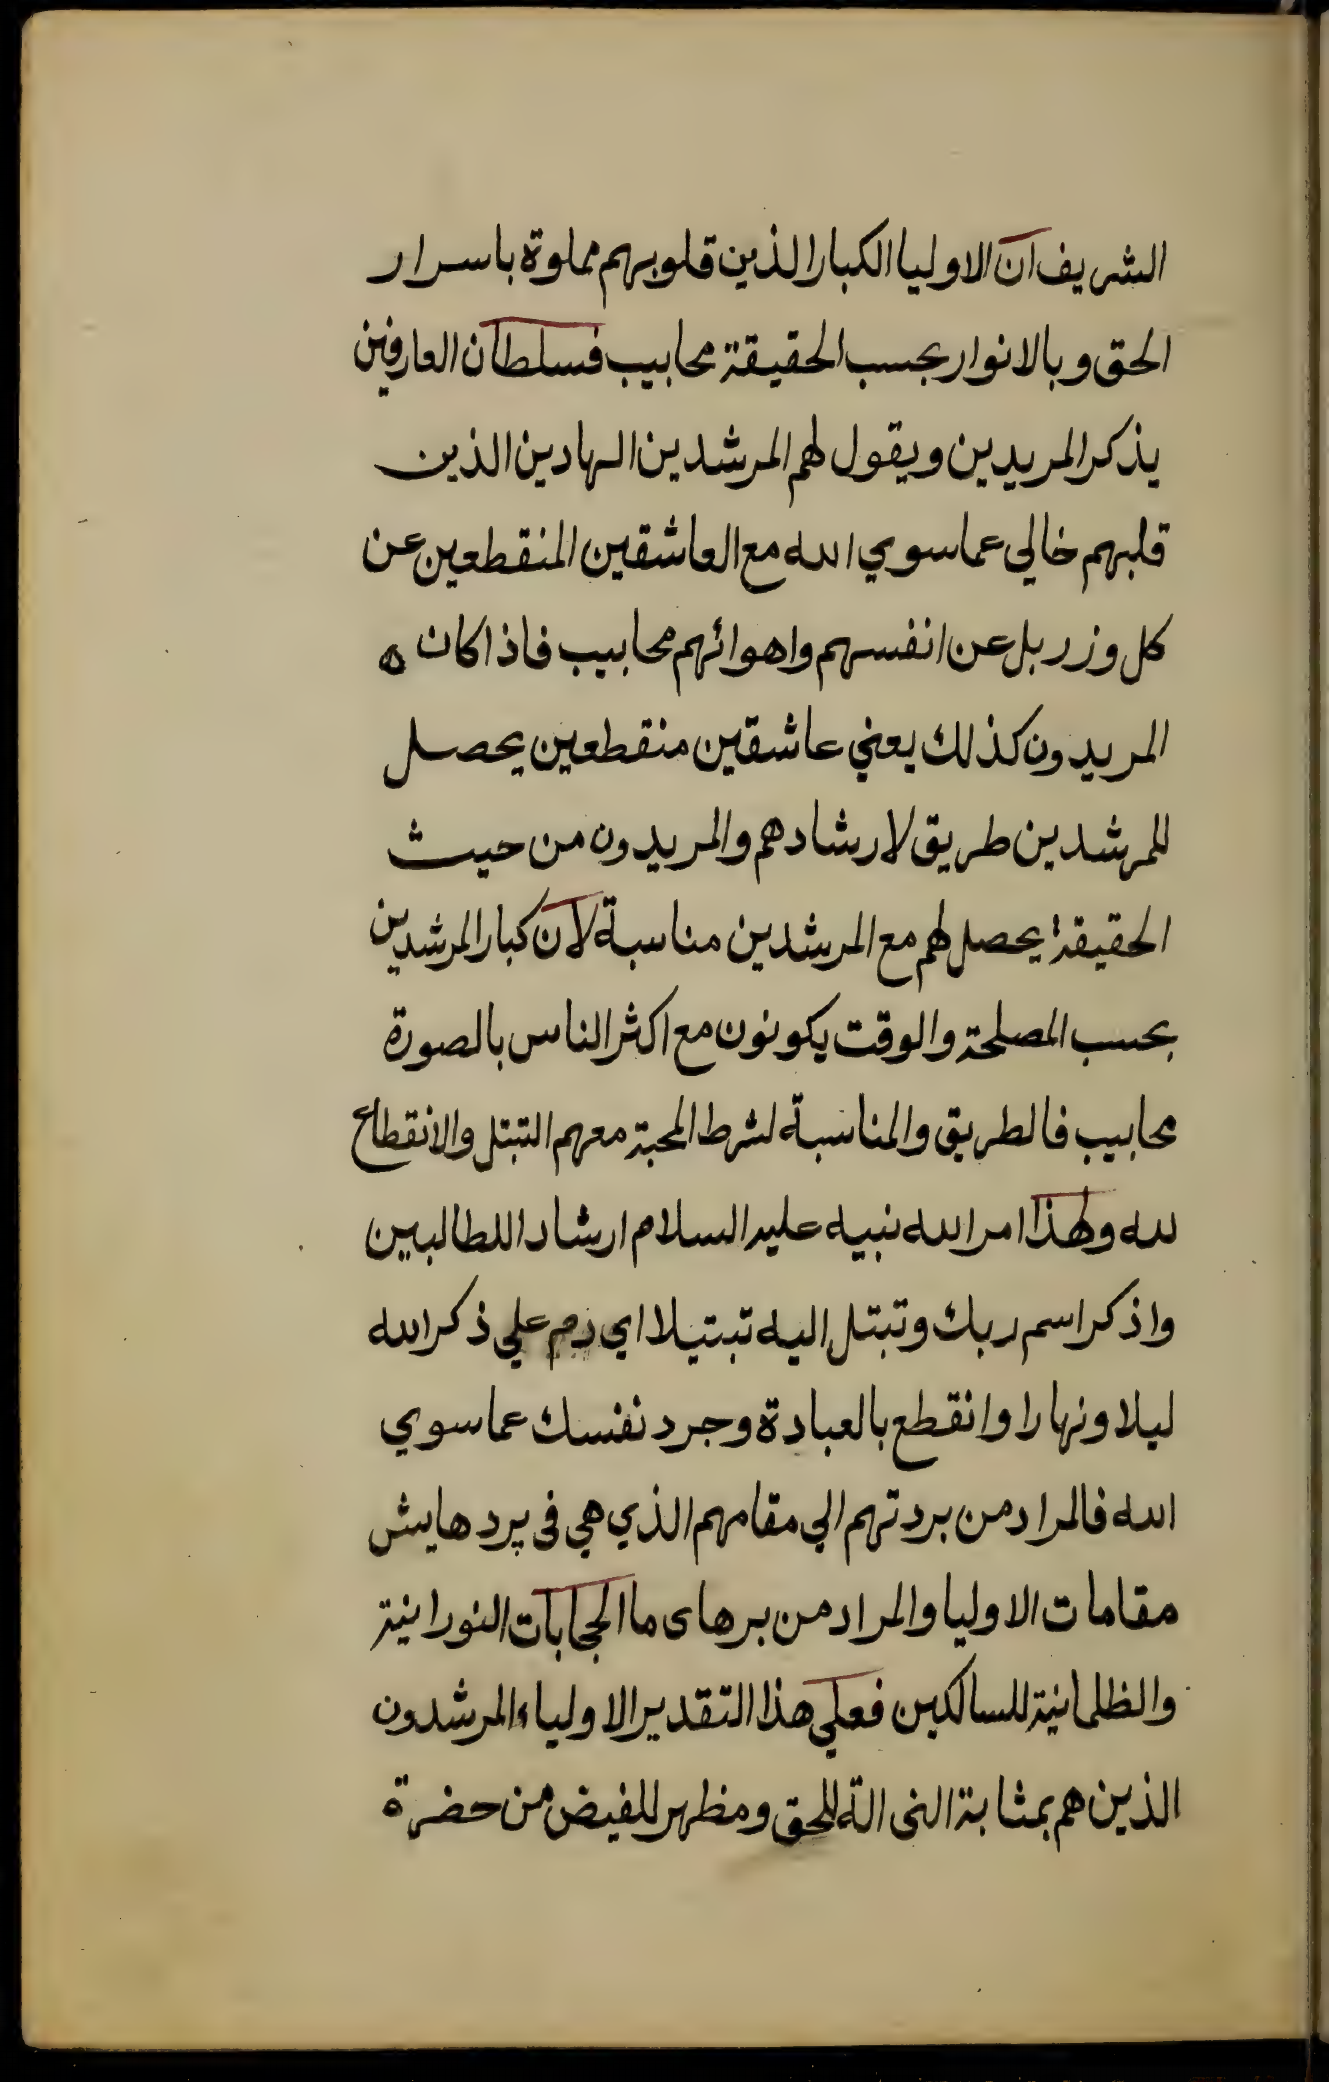 الشريف ان الاوليا الكبار الذين قلوبهم مملوة باسرار
الحق وبالانوار بحسب الحقيقة محابيب فسلطان العارفين
يذكر المريدين ويقول لهم المرشدين الهادين الذين
قلبهم خالي عما سوي الله مع العاشقين المنقطعين عن
كل وزر بل عن انفسهم واهوائهم محابيب فاذا كان ه
المريدون كذلك يعني عاشقين منقطعين يحصل
للمرشدين طريق لارشادهم والمريدون من حيث
الحقيقة يحصل لهم مع المرشدين مناسبة لان كبار المرشدين
بحسب المصلحة والوقت يكونون مع اكثر الناس بالصورة
محابيب فالطريق والمناسبة لشرط المحبة معهم التبتل والانقطاع
لله ولهذا امر الله نبيه عليه السلام ارشادا للطالبين
واذكر اسم ربك وتبتل اليه تبتيلا اي دم علي ذكر الله
ليلا ونهارا وانقطع بالعبادة وجرد نفسك عما سوي
الله فالمراد من بردتهم الي مقامهم الذي هي في پرد هايش
مقامات الاوليا والمراد من برهاى ما الحجابات النورانية
والظلمانية للسالكين فعلي هذا التقدير الاولياء المرشدون
الذين هم بمثابة النى الة للحق ومظهر للفيض من حضرة